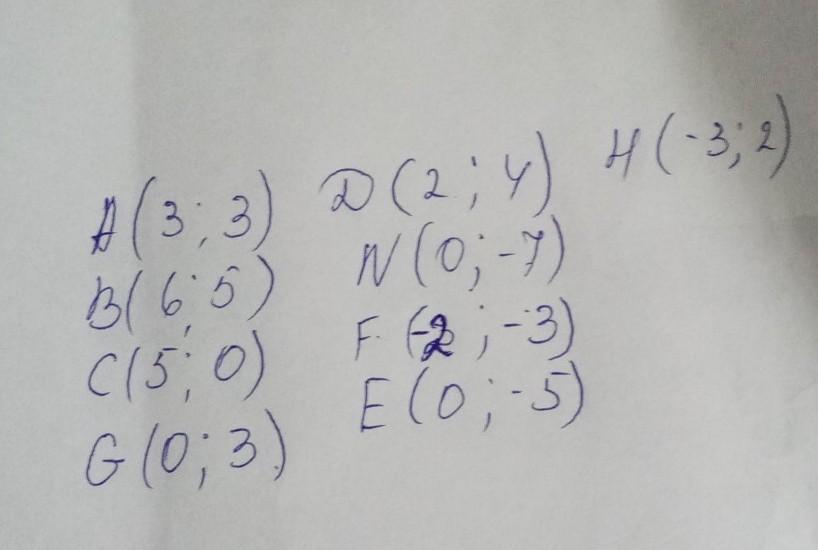 A(3; 3)
B(6; 5)
C(5; 0)
G(0; 3)
D(2; 4)
N(0; -7)
F(-2; -3)
E(0; -5)
H(-3; 2)